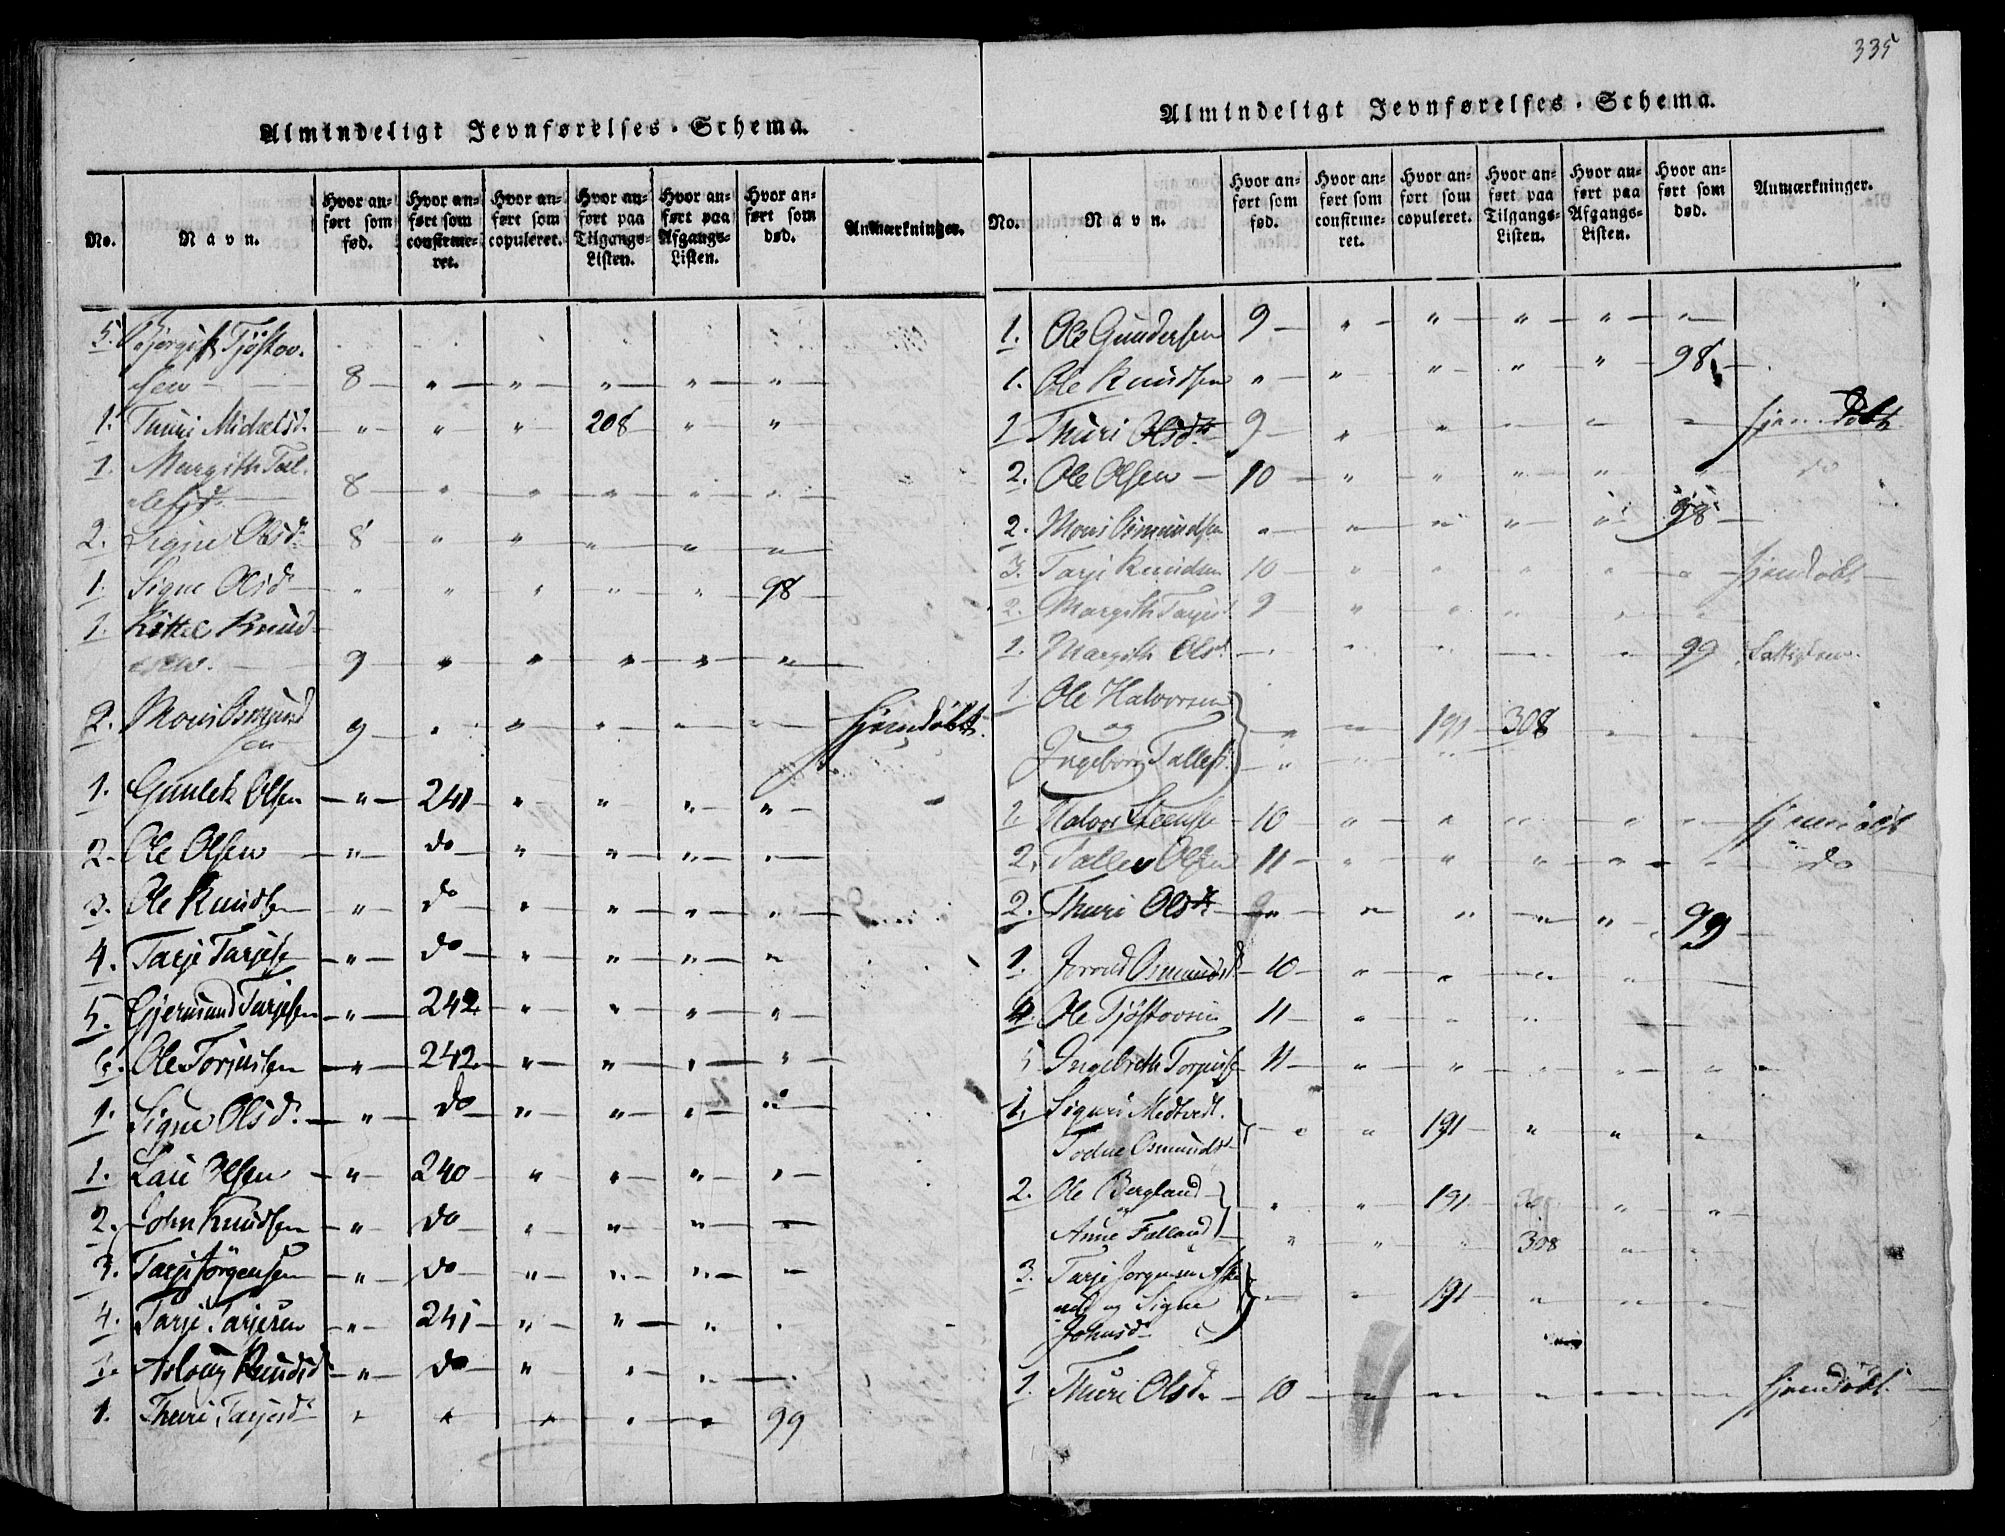 Almindeligt Jevnførelses-Schema.
No. Navn. Hvor anført som fød. Hvor anført som confirmeret. Hvor anført som copuleret. Hvor anført paa Tilgangs-Listen. Hvor anført paa Afgangs-Listen. Hvor anført som død. Anmærkninger.
5. Tjøstov-
sen 8 " " " " "
1. Thuri Michelsd. " " " 208 " "
1. Margith Tal-
lefsd. 8 " " " " "
2. Signe Olsd. 8 " " " " "
1. Signe Olsd " " " " " 98
1. Kittel Knud-
sen. 9 " " " " "
2. Mons Osmund
sen 9 " " " " " hjemdøbt.
1. Gunlek Olsen " 241 " " " "
2. Ole Olsen " do " " " "
3. Ole Knudsen " do " " " "
4. Tarje Tarjesen " do " " " "
5. Gjermund Tarjesen " 242 " " " "
6. Ole Torjussen " 242 " " " "
1. Signe Olsd. " do " " " "
1. Lau Olsen " 240 " " " "
2. John Knudsen " do " " " "
3. Tarje Jørgensen " do " " " "
4. Tarje Tarjesen " 241 " " " "
1. Asloug Knudsd " do " " " "
1. Thuri Tarjesd " " " " " 99
335
Almindeligt Jevnførelses-Schema.
No. Navn. Hvor anført som fød. Hvor anført som confirmeret. Hvor anført som copuleret. Hvor anført paa Tilgangs-Listen. Hvor anført paa Afgangs-Listen. Hvor anført som død. Anmærkninger.
1. Ole Gundersen 9 " " " " "
1. Ole Knudsen " " " " " 98
1 Thuri Olsd. 9 " " " " " hjemdøbt
2. Ole Olsen 10 " " " " " do
2. Mons Osmundsen " " " " " 98
3. Tarje Knudsen 10 " " " " " hjemdøbt
2. Margith Tarjesd 9 " " " " "
1. Margith Olsd. " " " " " 99
1. Ole Halvorsen
og " " 191 308 " "
Ingeborg Tallefsd. " " "
1. Halvor 10 " " " " " hjemdøbt
2. Tallev Olsen 11 " " " " " do
2. Thuri Olsd. " " " " " 99
1. Jorond Osmundsd 10 " " " "
4. Ole Tjøstovsen 11 " " "
5 Ingebreth Torjusse 11 " " " " "
1. Sigurd Midtvedt.
Todne Osmundsd " " 191 " " "
2. Ole Bergland " " 191 " "
Anne Falland " " " 308 " "
3. Tarje Jørgensen
og Signe " " 191 " " "
Johnsd
1. Thuri Olsd. 10 " " " " " hjemdøbt